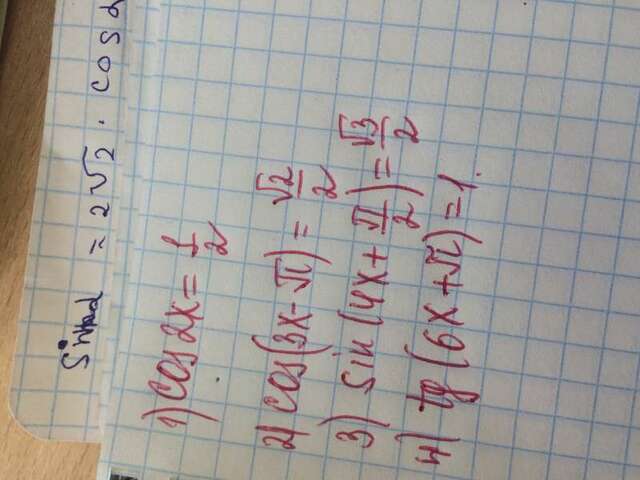 = 2√2 · cos α
1) cos 2x = 1/2
2) cos(3x - π) = √2/2
3) sin(4x + π/2) = √3/2
4) tg(6x + π) = 1.